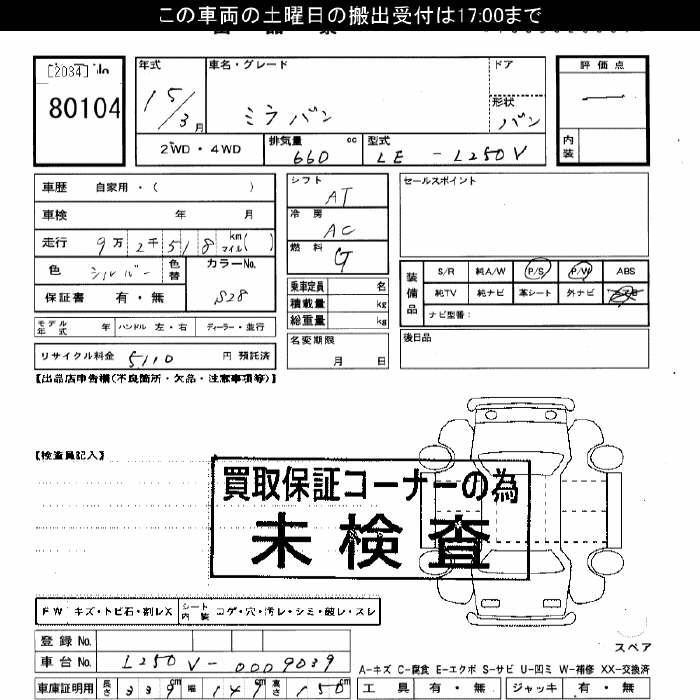 この車両の土曜日の搬出受付は17:00まで
[2034] No
80104
年式
15/3月
車名・グレード
ミラバン
ドア
形状
バン
評価点
内装
2WD・4WD
排気量 cc
660
型式
LE - L250V
車歴 自家用・( )
車検 年 月
走行 9万 2千 518 km マイル( )
色 シルバー 色替
カラーNo.
S28
保証書 有・無
モデル年式 年 ハンドル 左・右 ディーラー・並行
リサイクル料金 5110 円 預託済
シフト
AT
冷房
AC
燃料
G
乗車定員 名
積載量 kg
総重量 kg
名変期限
月 日
セールスポイント
装備品
S/R 純A/W P/S P/W ABS
純TV 純ナビ 革シート 外ナビ
ナビ型番:
後日品
【出品店申告欄(不良箇所・欠品・注意事項等)】
【検査員記入】
買取保証コーナーの為
未検査
FW キズ・トビ石・割レX
シート 内装 コゲ・穴・汚レ・シミ・破レ・スレ
登録No.
車台No. L250V-0009039
車庫証明用 長さ 339cm 幅 149cm 高さ 150cm
スペア
A-キズ C-腐食 E-エクボ S-サビ U-凹ミ W-補修 XX-交換済
工具 有・無 ジャッキ 有・無